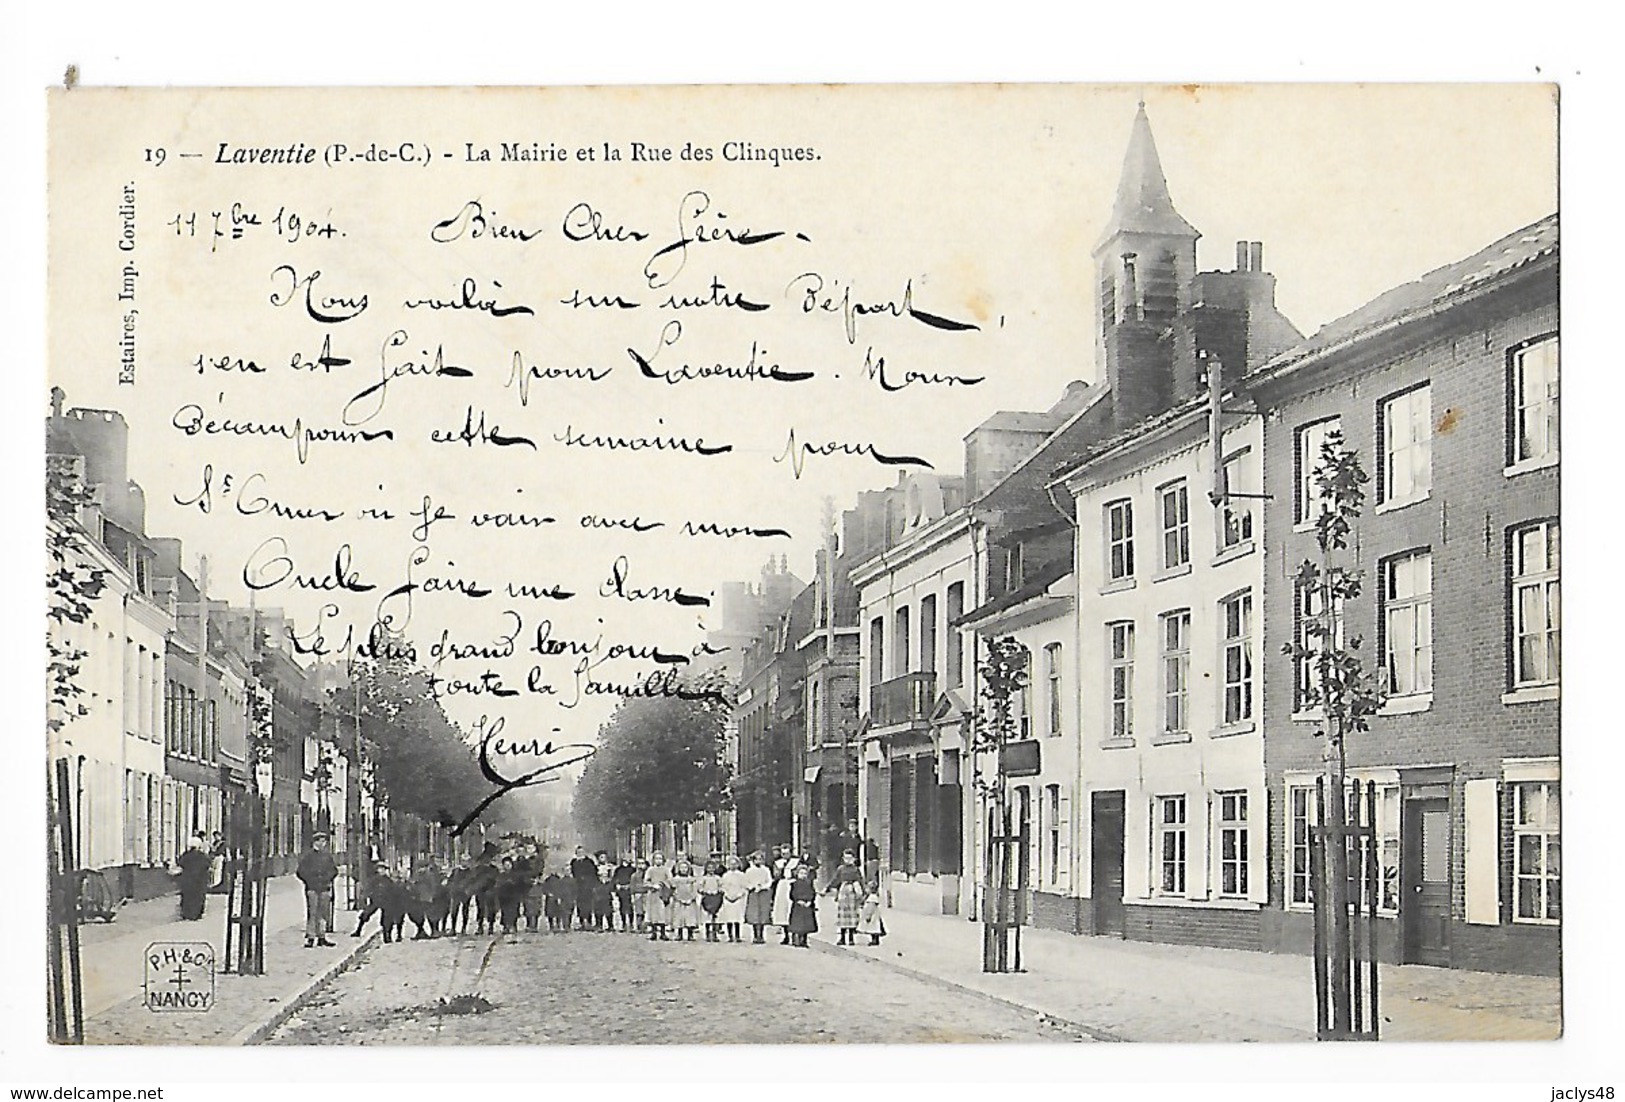 19 — Laventie (P.-de-C.) - La Mairie et la Rue des Clinques.
Estaires, Imp. Cordier.
11 7bre 1904. Bien Cher Frère -
Nous voilà sur notre Départ,
s'en est fait pour Laventie. Nous
Décampons cette semaine pour
St Omer où je vais avec mon
Oncle faire une classe.
Le plus grand bonjour à
toute la famille
Henri
P.H. & Cie
NANCY
delcampe.net
jaclys48